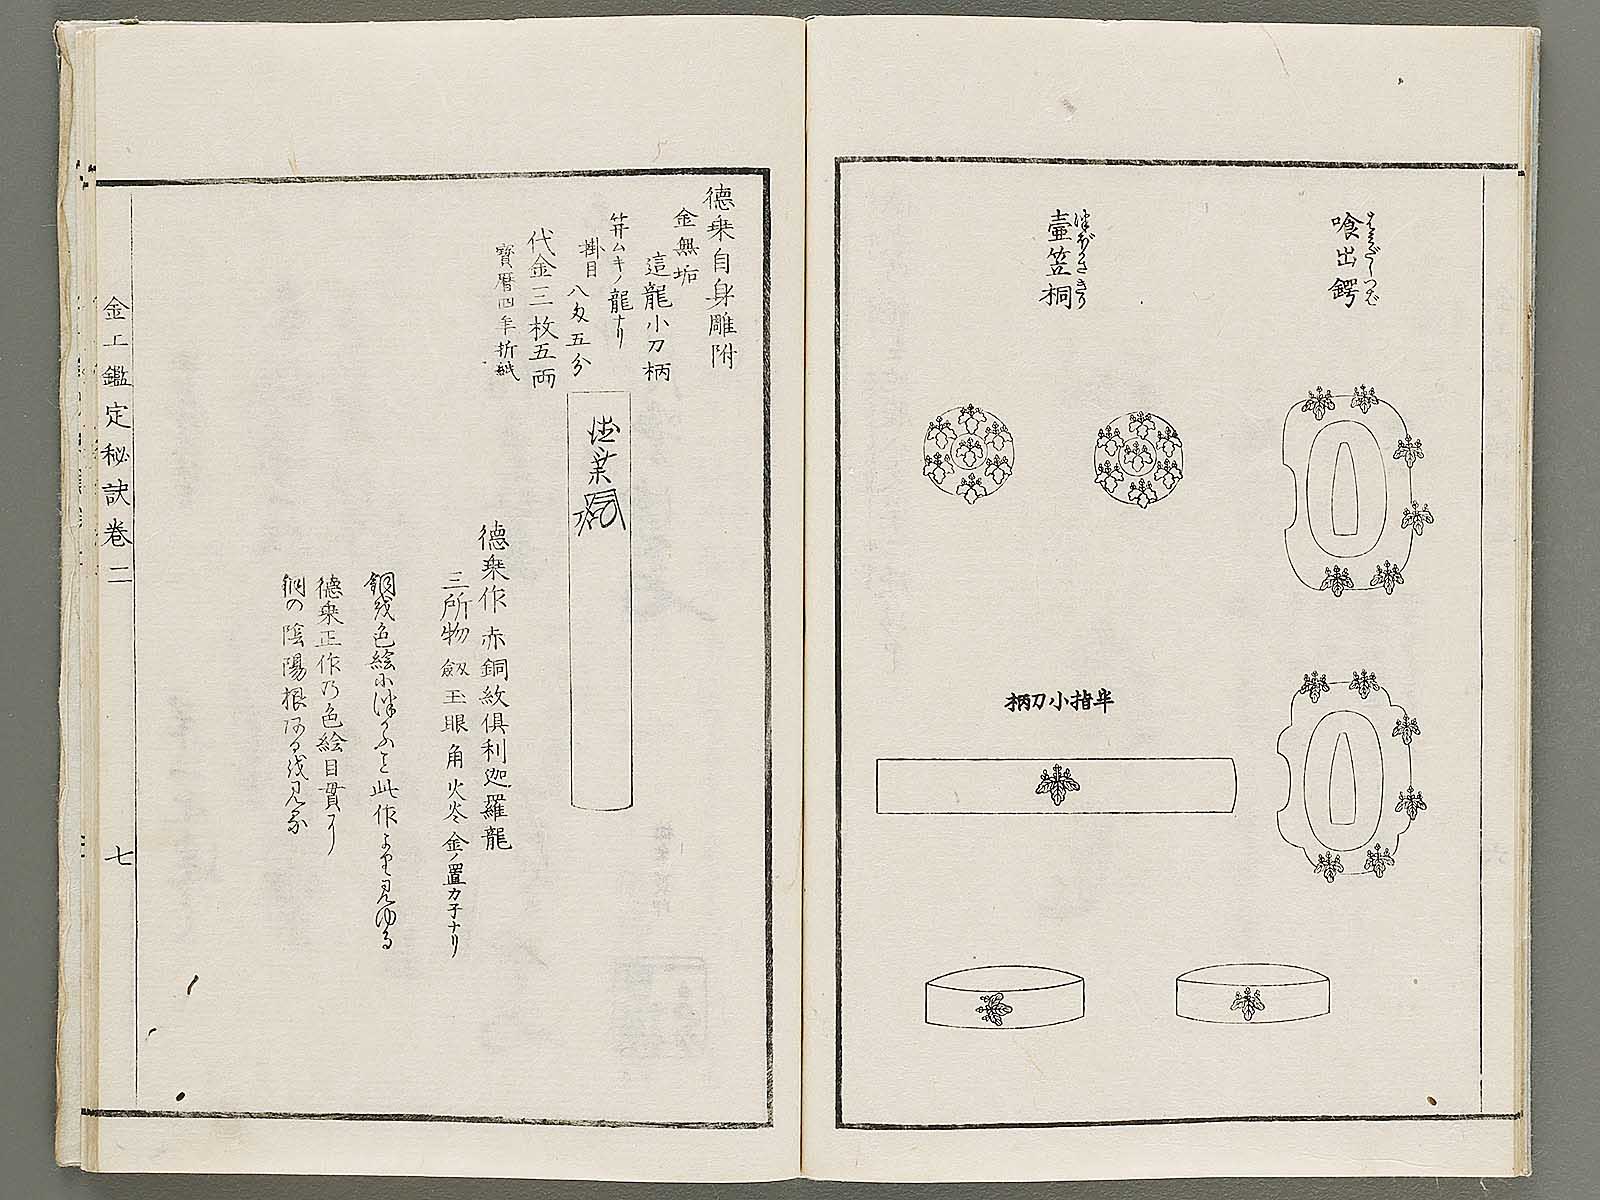 喰出鍔
はみだしつば
壷笠桐
つぼかさきり
半指小刀柄
徳乗自身雕附
金無垢
這龍小刀柄
笄ムキノ龍ナリ
掛目八匁五分
代金三枚五両
寳暦四年折紙
徳乗
徳乗作赤銅紋倶利迦羅龍
三所物劔玉眼角火炎金ノ置カ子ナリ
銅を色絵に
此作より見ゆる
徳乗正作乃色絵目貫
銅の陰陽根
金工鑑定秘訣巻二
七